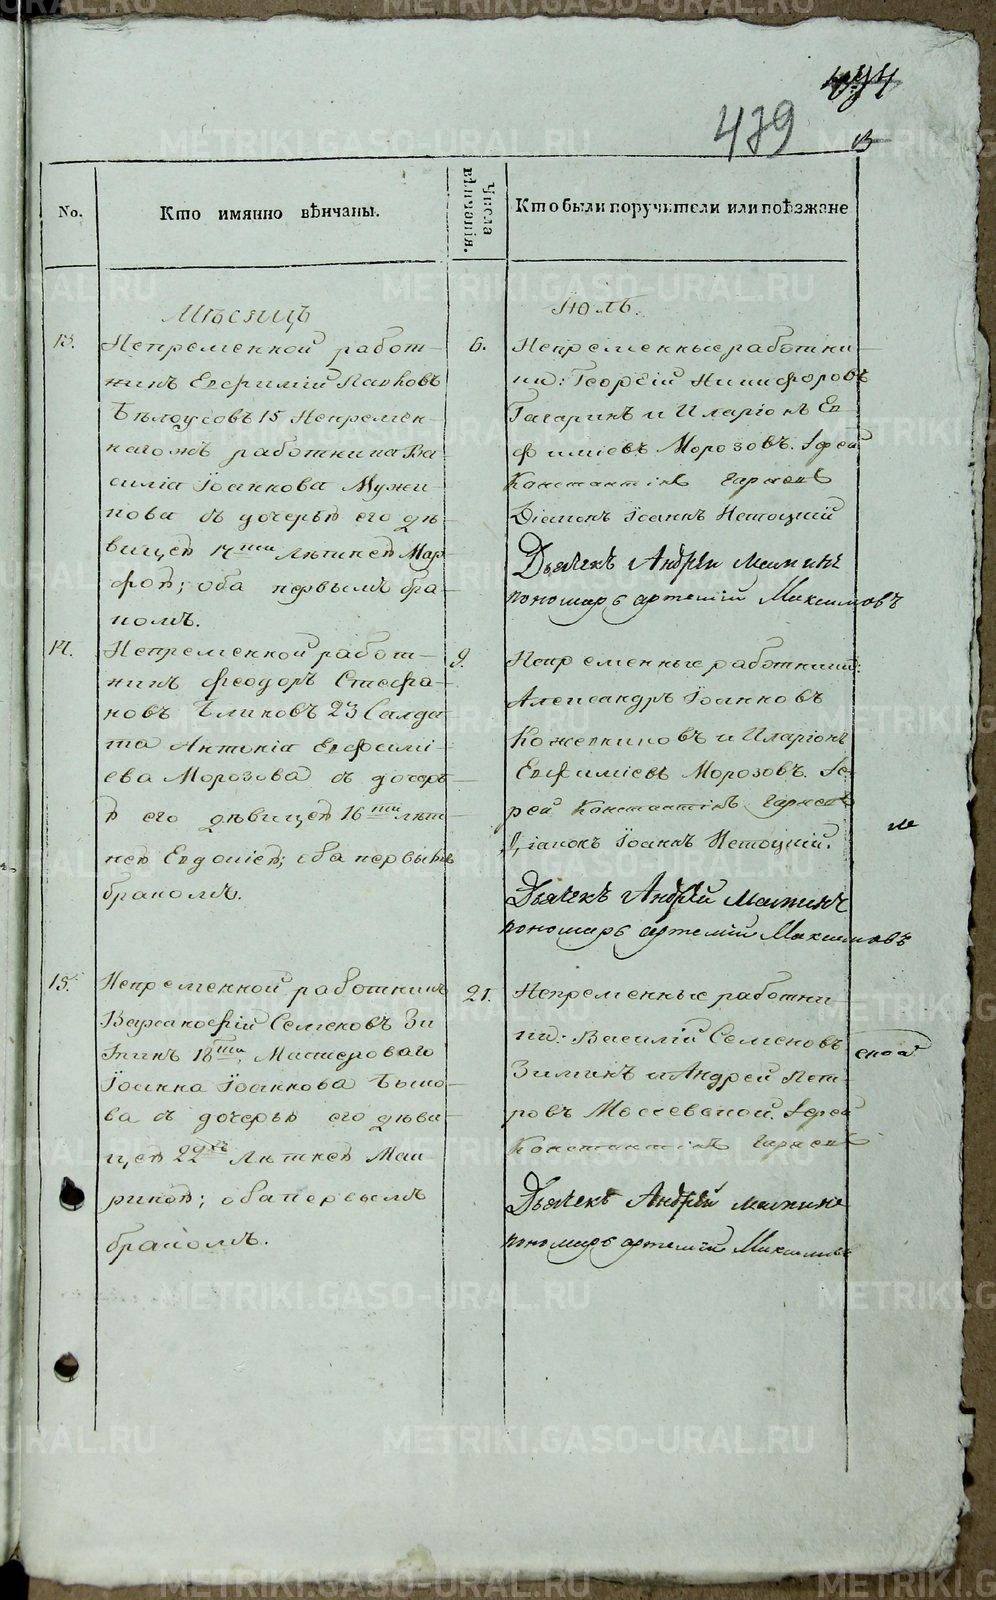 439
No.
Кто имянно вѣнчаны.
Числа вѣнчанія.
Кто были поручители или поѣзжане
Мѣсяцъ
Июль.
13.
Непременной работ-
никъ Евфимій
Бѣлоусовъ 15 Непремен-
нагожъ работника Ва-
силія Іоаннова
съ дочерью его дѣ-
вицей 17ти лѣтней Мар-
фой; оба первымъ бра-
комъ.
6.
Непременные работни-
ки: Георгій Никифоровъ
Гагаринъ и Иларіонъ Ев-
фиміевъ Морозовъ. Іерей
Константинъ
Діаконъ Іоаннъ
Дьячекъ Андрей Мамин
пономарь артемій Максимовъ
14.
Непременной работ-
никъ Феодоръ Стефа-
новъ 23 Салда-
та Антонія Евфимі-
ева Морозова съ дочерь-
ю его дѣвицей 16ти лѣт-
ней Евдокіей; оба первымъ
бракомъ.
9.
Непременные работники:
Александръ Іоанновъ
Кожевниковъ и Иларіонъ
Евфиміевъ Морозовъ. Іе-
рей Константинъ
Діаконъ Іоаннъ
Дьячекъ Андрей Мамин
пономарь артемій Максимовъ
15.
Непременной работникъ
Варѳоломей Семеновъ Зи-
минъ 18ти, Мастероваго
Іоанна Іоаннова
ва съ дочерью его дѣви-
цей 22хъ лѣтней Мав
рикой; оба первымъ
бракомъ.
21.
Непременные работни-
ки: Василій Семеновъ
Зиминъ и Андрей Пет-
ровъ Іерей
Константинъ
Дьячекъ Андрей Мамин
пономарь артемій Максимовъ
METRIKI.GASO-URAL.RU